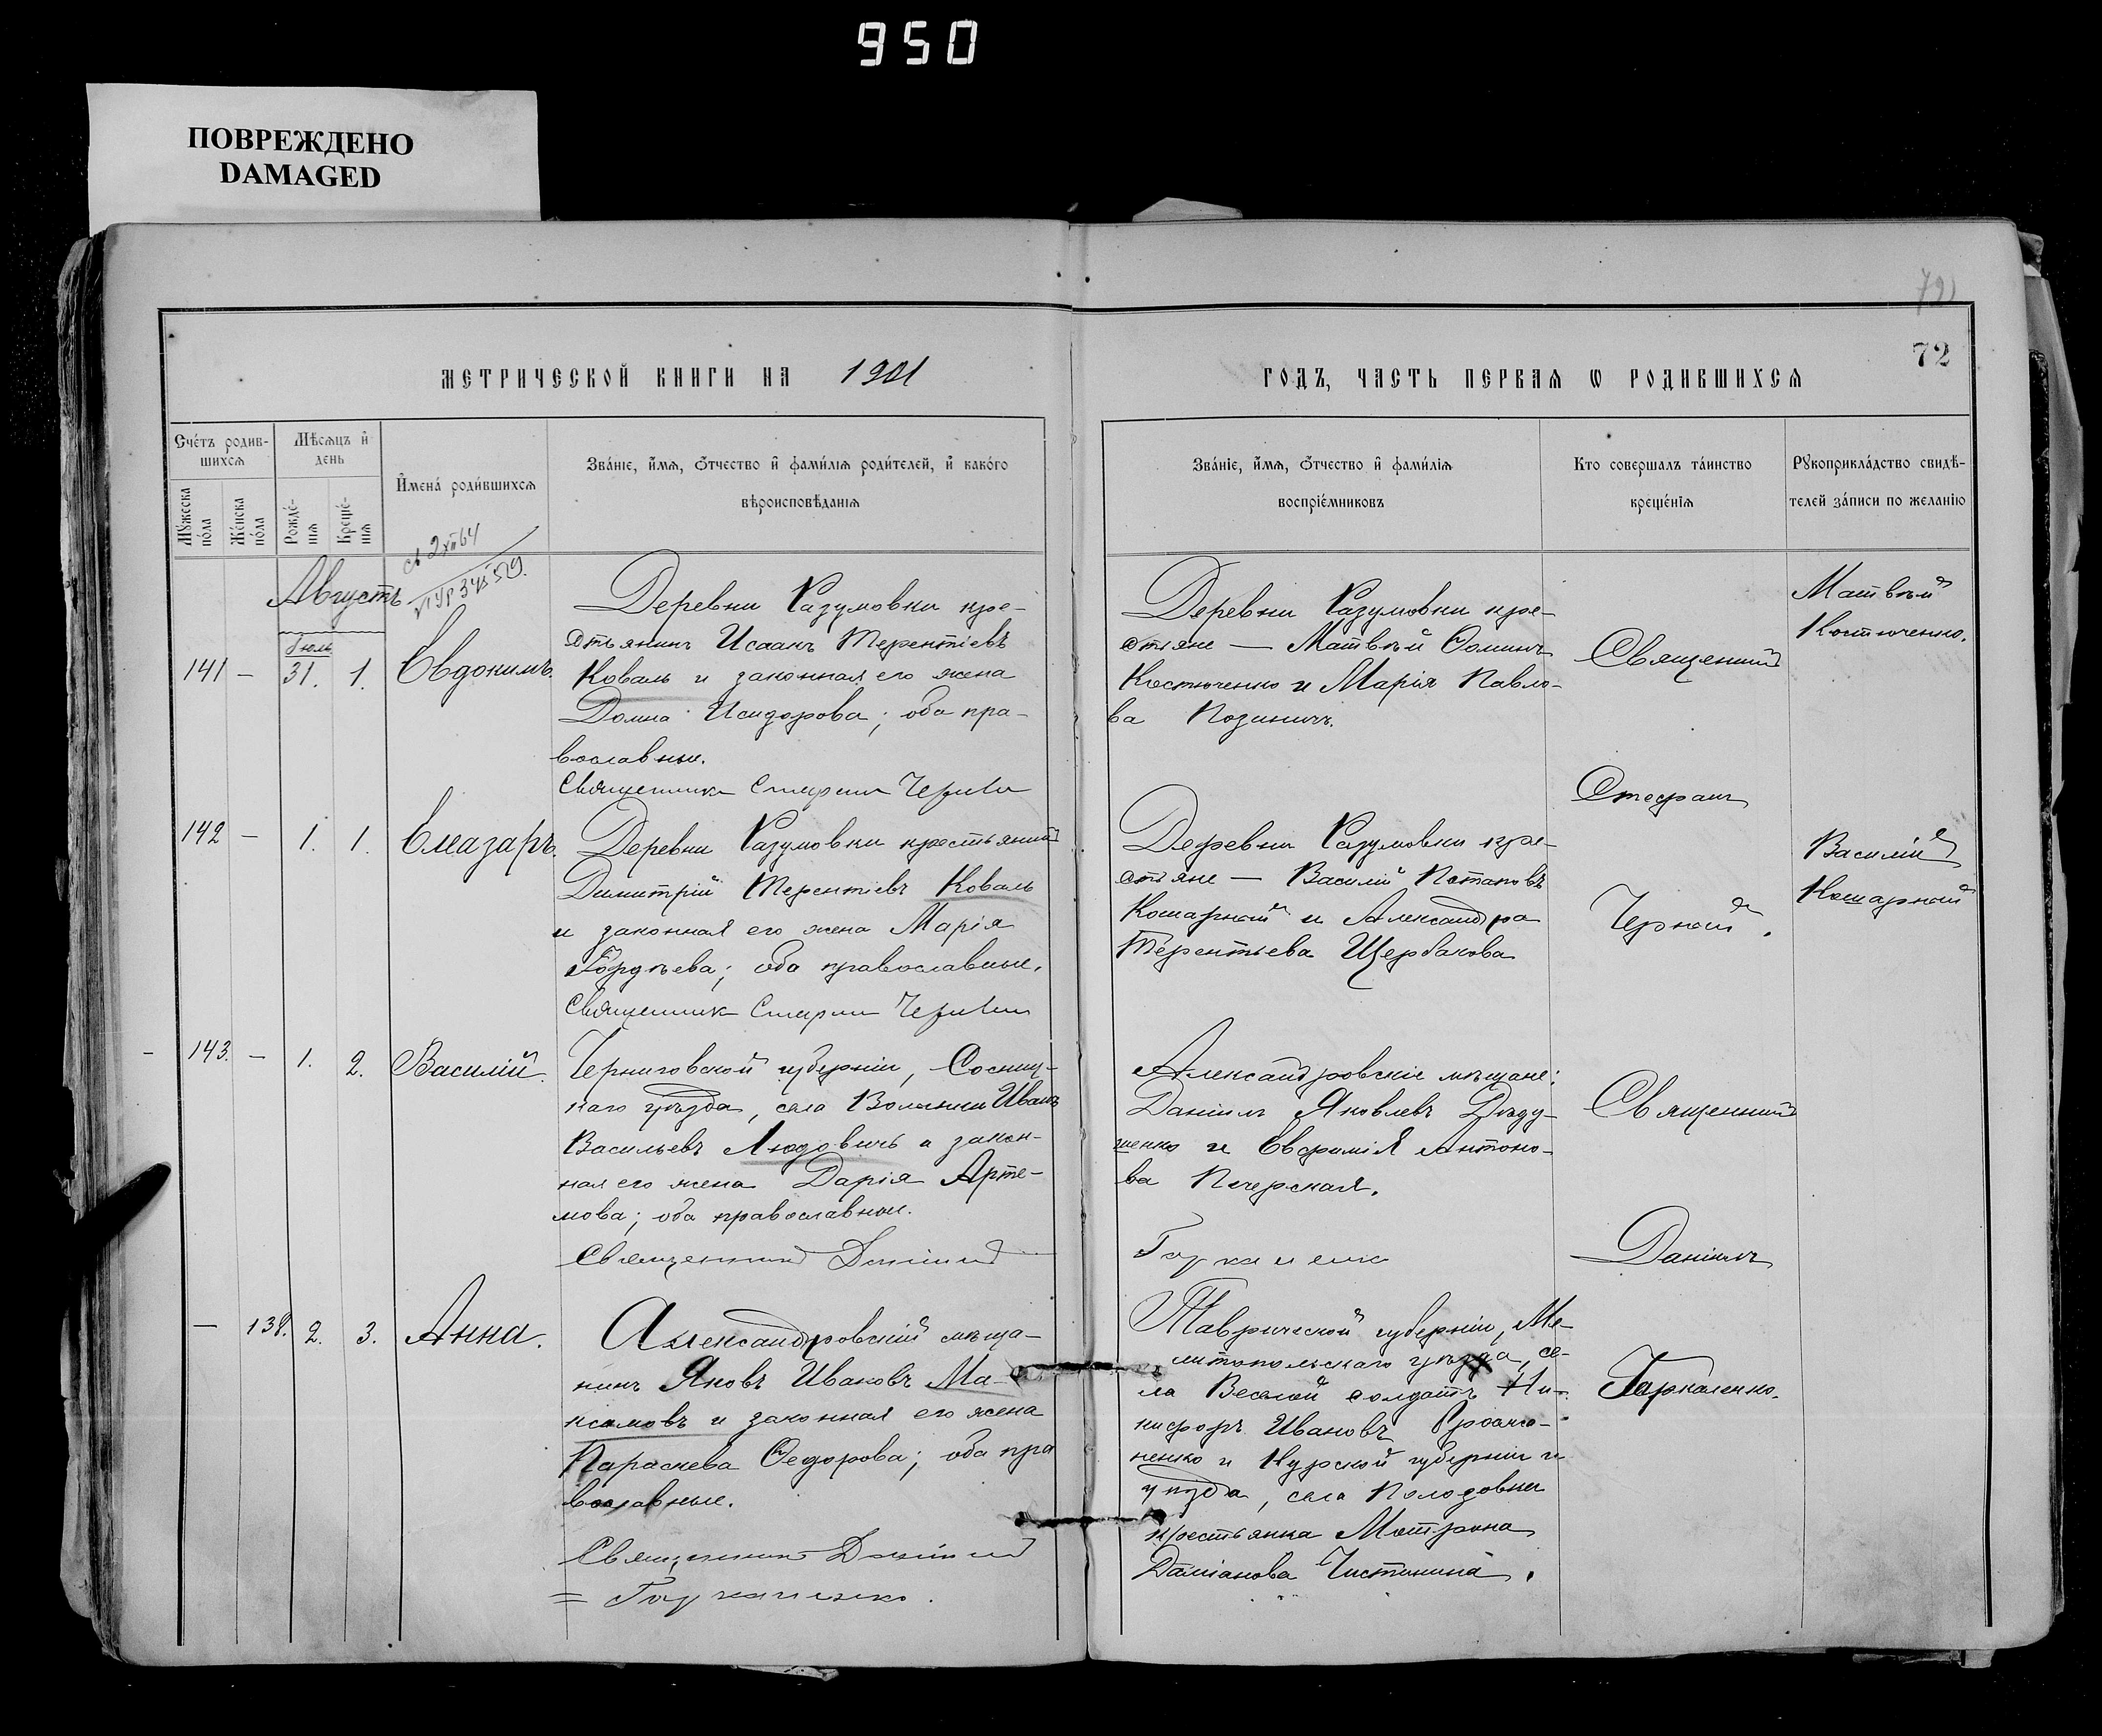 950
ПОВРЕЖДЕНО
DAMAGED
72
МЕТРИЧЕСКОЙ КНИГИ НА 1901
ГОДЪ, ЧАСТЬ ПЕРВАѦ Ѡ РОДИВШИХСѦ
Счетъ родив-
шихсѧ
Мужеска
пола
Женска
пола
Мѣсѧцъ и
день
Рожде-
нїѧ
Креще-
нїѧ
Имена родившихсѧ
Званїе, имѧ, отчество и фамилїѧ родителей, и какого
вѣроисповѣданїѧ
Званїе, имѧ, отчество и фамилїѧ
воспрїемниковъ
Кто совершалъ таинство
крещенїѧ
Рукоприкладство свидѣ-
телей записи по желанїю
св 2 XII 64
Августъ
Іюль
141 — 31. 1. Евдокимъ.
Деревни Разумовки кре-
стьянинъ Исаакъ Терентіевъ
Коваль и законная его жена
Домна Исидорова; оба пра-
вославные.
Священникъ Стефанъ Черный
Деревни Разумовки кре-
стьяне — Матвѣй Ѳоминъ
Костюченко и Марія Павло-
ва Позиничъ.
Священник
Стефанъ
Черный.
Матвѣй
Костюченко.
142 — 1. 1. Елеазаръ.
Деревни Разумовки крестьянинъ
Димитрій Терентіевъ Коваль
и законная его жена Марія
Гордѣева; оба православные.
Священникъ Стефанъ Черный
Деревни Разумовки кре-
стьяне — Василій Потаповъ
Кошарный и Александра
Терентьева Щербакова
Василій
Кошарный
— 143. — 1. 2. Василій.
Черниговской губерніи, Сосниц-
каго уѣзда, села Волынки Иванъ
Васильевъ Людовичъ и закон-
ная его жена Дарія Арте-
мова; оба православные.
Священникъ Даніилъ
Гаркаленко
Александровскіе мѣщане:
Даніилъ Яковлевъ Дѣду-
шенко и Евфимія Антоно-
ва Печерская.
Священник
Даніилъ
Гаркаленко.
— 138. 2. 3. Анна.
Александровскій мѣща-
нинъ Яковъ Ивановъ Ма-
ксимовъ и законная его жена
Параскева Ѳедорова; оба пра
вославные.
Священникъ Даніилъ
= Гаркаленко.
Таврической губерніи, Ме-
литопольскаго уѣзда, се-
ла Веселой солдатъ Ни-
кифоръ Ивановъ
ненко и Курской губерніи и
уѣзда, села
крестьянка Матрона
Даміанова Чистикина.